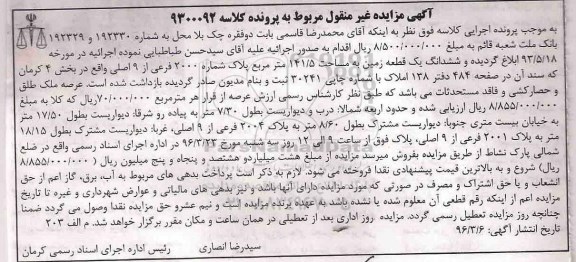 آگهی مزایده غیر منقول مربوط به پرونده کلاسه ۹۳۰۰۰۹۲
به موجب پرونده اجرایی کلاسه فوق نظر به اینکه آقای محمدرضا قاسمی بابت دوفقره چک بلا محل به شماره ۱۹۲۳۳۰ و ۱۹۲۳۲۹
بانک ملت شعبه قائم به مبلغ ۸/۵۰۰/۰۰۰/۰۰۰ ریال اقدام به صدور اجرائیه علیه آقای سیدحسن طباطبایی نموده اجرائیه در مورخه
۹۳/۵/۱۸ ابلاغ گردیده و ششدانگ یک قطعه زمین به مساحت ۱۴۱/۵ متر مربع پلاک شماره ۲۰۰۰ فرعی از ۹ اصلی واقع در بخش ۴ کرمان
که سند آن در صفحه ۴۸۴ دفتر ۱۳۸ املاک با شماره چاپی ۳۰۲۴۱ ثبت و بنام مدیون صادر گردیده بازداشت شده است. عرصه ملک طلق
و حصارکشی و فاقد مستحدثات می باشد که طلق نظر کارشناس رسمی ارزش عرصه از قرار هر مترمربع ۷۰/۰۰۰/۰۰۰ریال که کلا به مبلغ
۸/۸۵۵/۰۰۰/۰۰۰ ریال ارزیابی شده و حدود اربعه شمالا: درب و دیواریست بطول ۷/۳۰ متر به پیاده رو شرقا: دیواریست بطول ۱۷/۵۰ متر
به خیابان بیست متری جنوبا: دیواریست مشترک بطول ۸/۶۰ متر به پلاک ۲۰۰۴ فرعی از ۹ اصلی، غربا: دیواریست مشترک بطول ۱۸/۱۵
متر به پلاک ۲۰۰۱ فرعی از ۹ اصلی، پلاک فوق از ساعت ۹ الی ۱۲ روز سه شنبه مورخ ۹۶/۳/۲۳ در اداره اجرای اسناد رسمی واقع در ضلع
شمالی پارک نشاط از طریق مزایده بفروش میرسد مزایده از مبلغ هشت میلیاردو هشتصد و پنجاه و پنج میلیون ریال (۸/۸۵۵/۰۰۰/۰۰۰
ریال) شروع و به بالاترین قیمت پیشنهادی نقدا فروخته می شود. لازم به ذکر است پرداخت بدهی های مربوط به آب، برق، گاز اعم از حق
انشعاب و یا حق اشتراک و مصرف در صورتی که مورد مزایده دارای آنها باشد و نیز بدهی های مالیاتی و عوارض شهرداری و غیره تا تاریخ
مزایده اعم از اینکه رقم قطعی آن معلوم شده یا نشده باشد به عهده برنده مزایده است و نیم عشرو حق مزایده نقدا وصول می گردد ضمنا
چنانچه روز مزایده تعطیل رسمی گردد. مزایده روز اداری بعد از تعطیلی در همان ساعت و مکان مقرر برگزار خواهد شد. م الف ۲۰۳
تاریخ انتشار آگهی: ۹۶/۳/۶
سیدرضا انصاری
رئیس اداره اجرای اسناد رسمی کرمان